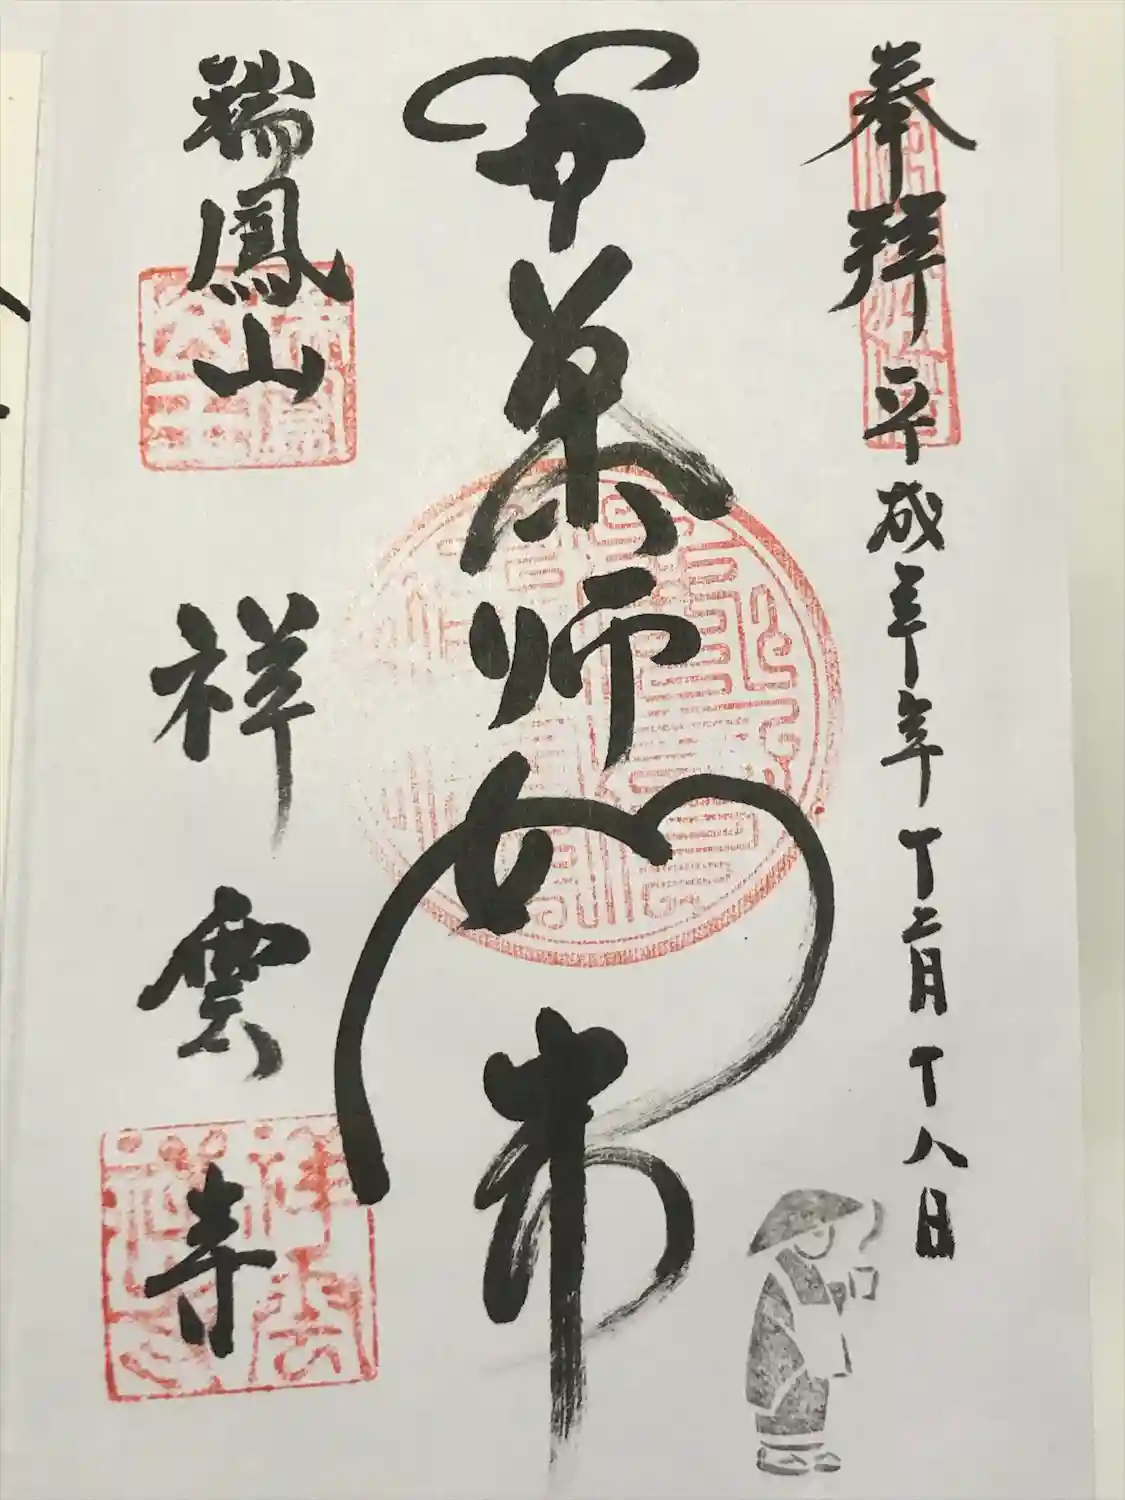 奉拝 平成三十年十二月十八日
薬師如来
瑞鳳山
祥雲寺